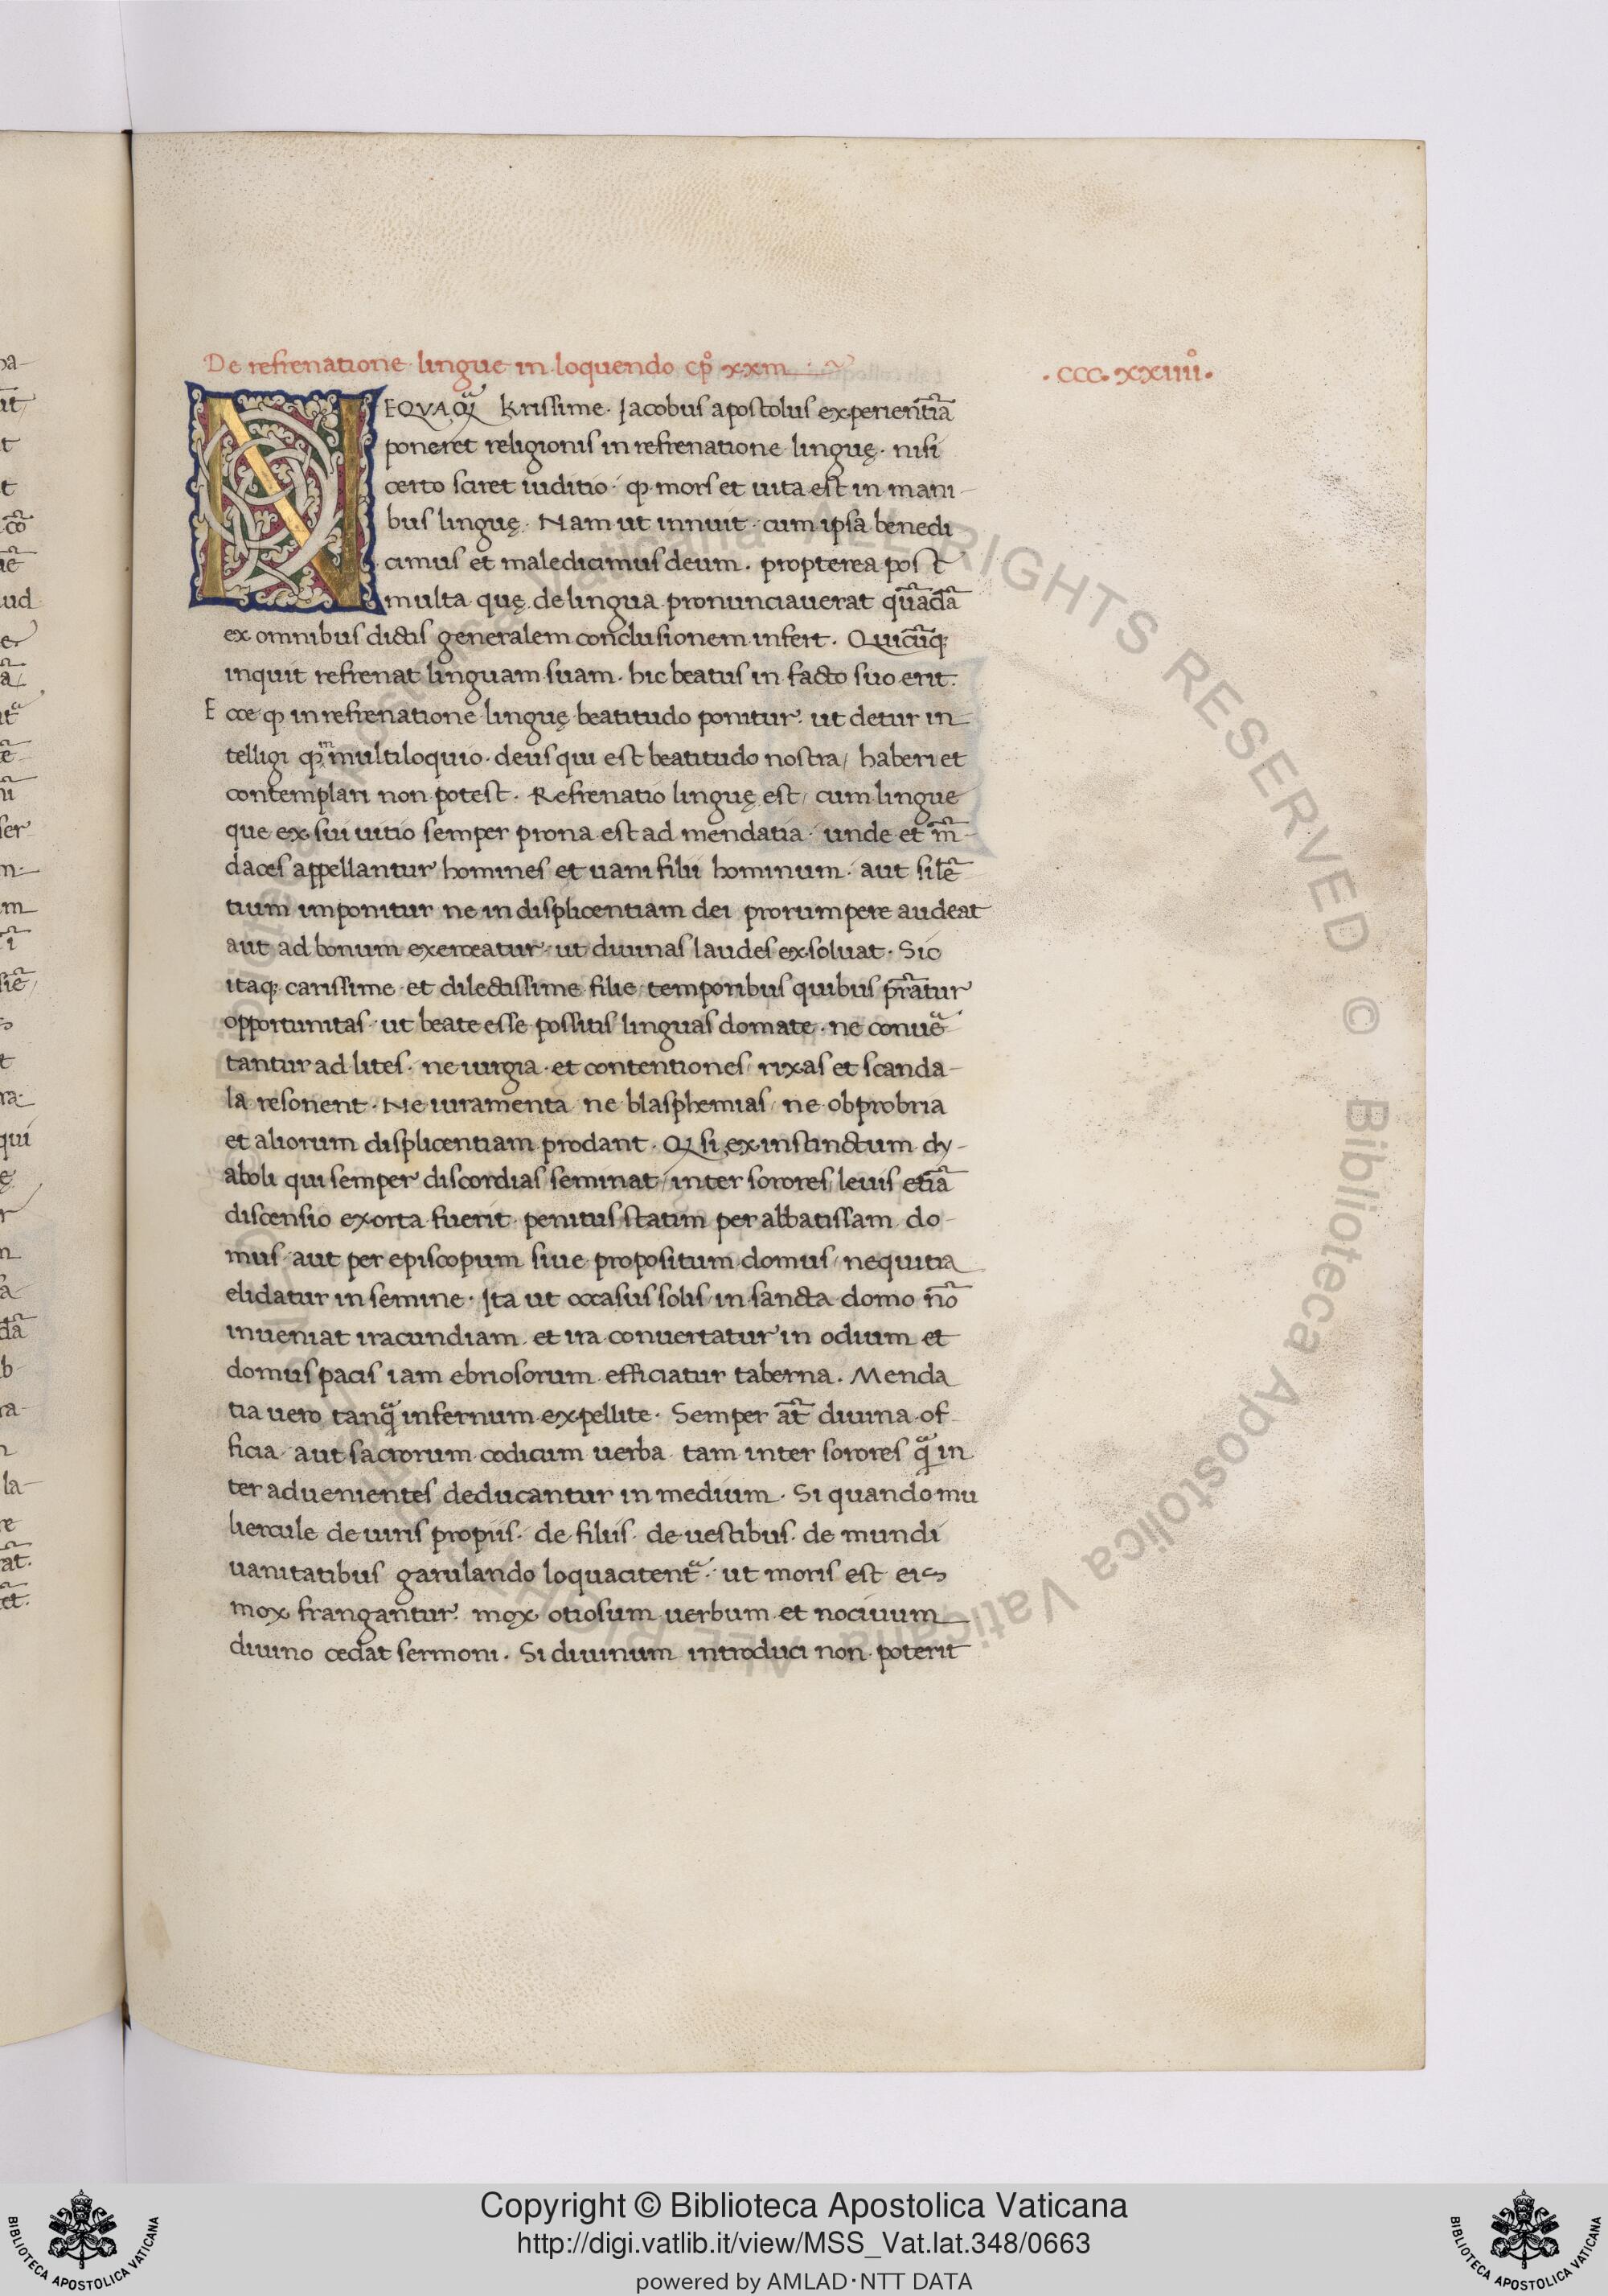 De refrenatione lingue in loquendo cp̊ xxm
. ccc. xxiiii̊.
NEQVAQ̃ krissime. Jacobus apostolus experient̃iã
poneret religionis in refrenatione linguę. nisi
certo sciret iuditio. ꝙ mors et uita est in mani-
bus linguę. Nam ut innuit. cum ipsa benedi
cimus et maledicimus deum. propterea post
multa quę de lingua pronunciauerat quãdã
ex omnibus dictis generalem conclusionem infert. Quicũq;
inquit refrenat linguam suam. hic beatus in facto suo erit.
E cce ꝙ in refrenatione linguę beatitudo ponitur. ut detur in
telligi ꝙ in multiloquio. deus qui est beatitudo nostra/ haberi et
contemplari non potest. Refrenatio linguę est/ cum lingue
que ex sui uitio semper prona est ad mendatia. unde et m̃-
daces appellantur homines et uani filii hominum. aut silẽ
tium imponitur ne in displicentiam dei prorumpere audeat
aut ad bonum exerceatur. ut diuinas laudes exsoluat. Sic
itaq; carissime et dilectissime filie temporibus quibus p̃ratur
opportunitas. ut beate esse possitis linguas domate. ne conuẽ
tantur ad lites. ne iurgia. et contentiones/ rixas et scanda-
la resonent. Ne iuramenta/ ne blasphemias/ ne obprobria
et aliorum displicentiam prodant. Q si ex instinctum dy-
aboli qui semper discordias seminat/ inter sorores/ leuis etiã
discensio exorta fuerit. penitus statim per abbatissam do-
mus. aut per episcopum siue propositum domus/ nequitia
elidatur in semine. Ita ut occasus solis in sancta domo nõ
inueniat iracundiam. et ira conuertatur in odium et
domus pacis iam ebriosorum efficiatur taberna. Menda
tia uero tanq̃ infernum expellite. Semper at̃ diuina of-
ficia. aut sacrorum codicum uerba tam inter sorores q̃ in
ter aduenientes deducantur in medium. Si quando mu
liercule de uiris propiis. de filiis. de uestibus. de mundi
uanitatibus garulando loquacitent̃. ut moris est eis
mox frangantur. mox otiosum uerbum et nociuum
diuino cedat sermoni. Si diuinum introduci non poterit
Biblioteca Apostolica Vaticana ALL RIGHTS RESERVED © Biblioteca Apostolica Vaticana ALL RIGHTS RESERVED ©
Copyright © Biblioteca Apostolica Vaticana
http://digi.vatlib.it/view/MSS_Vat.lat.348/0663
powered by AMLAD·NTT DATA
BIBLIOTECA APOSTOLICA VATICANA
BIBLIOTECA APOSTOLICA VATICANA